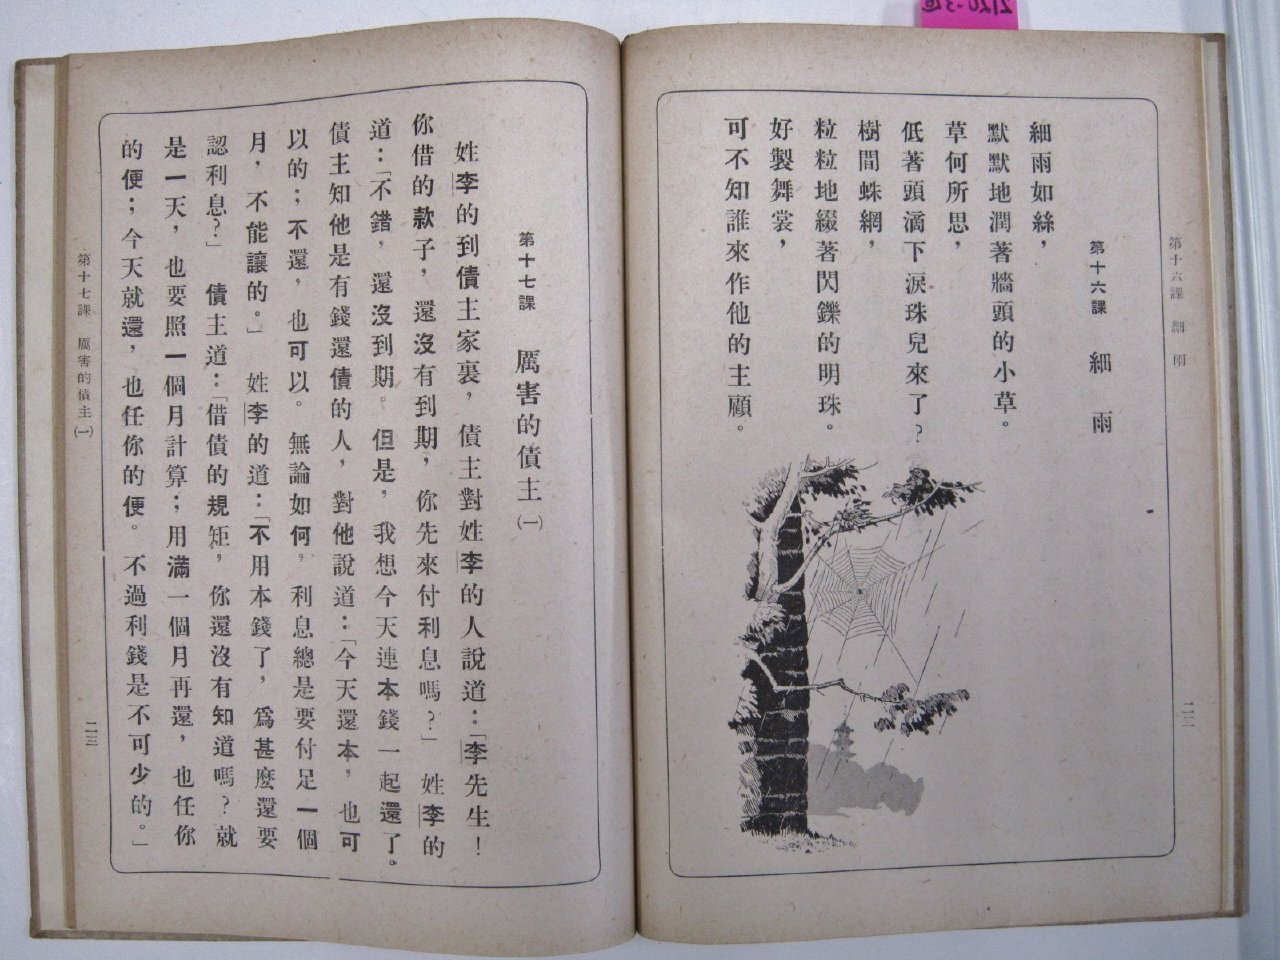 第十六課 細雨
二二
第十六課 細雨
細雨如絲，
默默地潤著牆頭的小草。
草何所思，
低著頭滴下淚珠兒來了？
樹間蛛網，
粒粒地綴著閃鑠的明珠。
好製舞裳，
可不知誰來作他的主顧。
第十七課 厲害的債主(一)
姓李的到債主家裏，債主對姓李的人說道：「李先生！
你借的款子，還沒有到期，你先來付利息嗎？」姓李的
道：「不錯，還沒到期。但是，我想今天連本錢一起還了。
債主知他是有錢還債的人，對他說道：「今天還本，也可
以的；不還，也可以。無論如何，利息總是要付足一個
月，不能讓的。」姓李的道：「不用本錢了，爲甚麼還要
認利息？」債主道：「借債的規矩，你還沒有知道嗎？就
是一天，也要照一個月計算；用滿一個月再還，也任你
的便；今天就還，也任你的便。不過利錢是不可少的。」
第十七課 厲害的債主(一)
二三